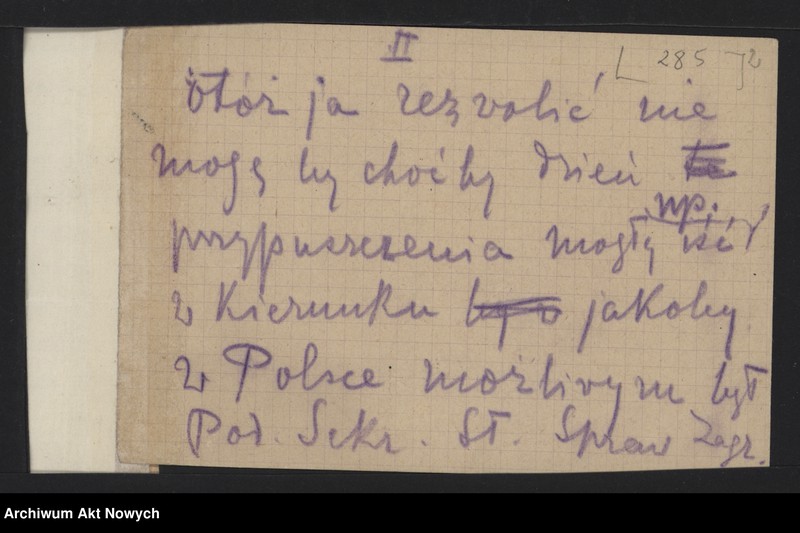 II
[285]2
Otóż ja zezwolić nie
mogę by choćby dzień
np.
przypuszczenia mogły iść
w kierunku jakoby
w Polsce możliwym był
Pod. Sekr. St. Spraw Zagr.
Archiwum Akt Nowych